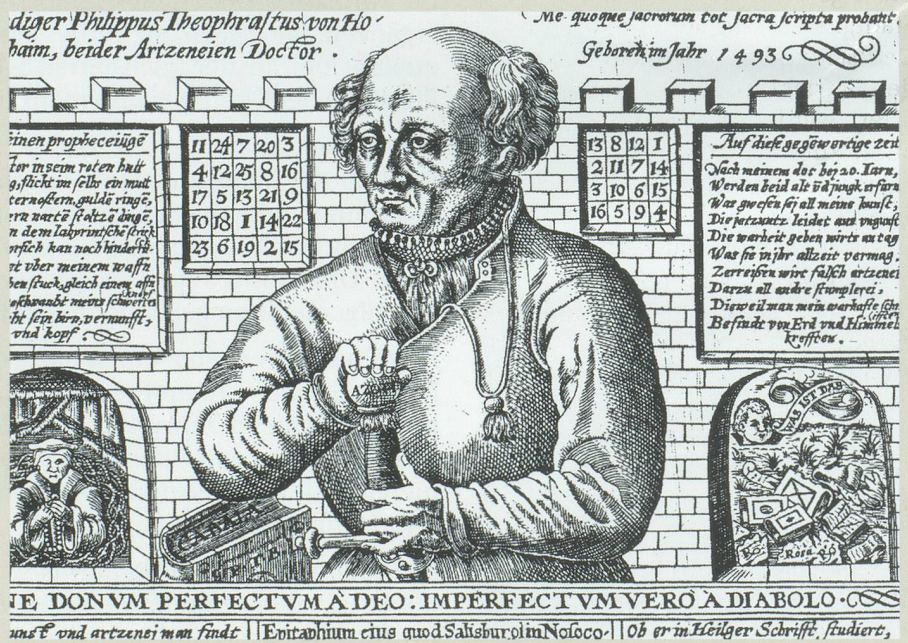 diger Philippus Theophrastus von Ho-
haim, beider Artzeneien Doctor.
Me quoque sacrorum tot sacra scripta probant.
Geboren im Jahr 1493
einen propheceiūgē
tor in seim roten hutt
sticht im selbs ein mutt
guldē ringē,
n dem labyrintsche strick
kan noch hindersi
et vber meinem waffn
ben stuck, gleich einen affn
geschraubt meins schwertes
knopf
ht sein hirn, vernunft,
vnd kopf.
11 24 7 20 3
4 12 25 8 16
17 5 13 21 9
10 18 1 14 22
23 6 19 2 15
13 8 12 1
2 11 7 14
3 10 6 15
16 5 9 4
Auf diese gegēwertige zeit
Nach meinem dot bey 20. Iarn,
Werden beid alt vūd jungk erfarn
Was gwesen sej all mein kunst,
Die jetzuntz leidet aus vngunst
Die warheit geben wirts an tag
Was sie in ihr allzeit vermag.
Zerreissen wirt falsch artzenei
Darzu all andre stumplerei.
Die weil man mein warhafte
Befindt von Erd vnd Himmels
krefften.
AZOTH
CABALA
WAS IST DAS
Rosa
NE DONVM PERFECTVM À DEO: IMPERFECTVM VERÒ À DIABOLO.
unst vnd artzenej man findt
Epitaphium eius quod Salisburgi in Nosoco-
Ob er in Heilger Schrifft, studiert,